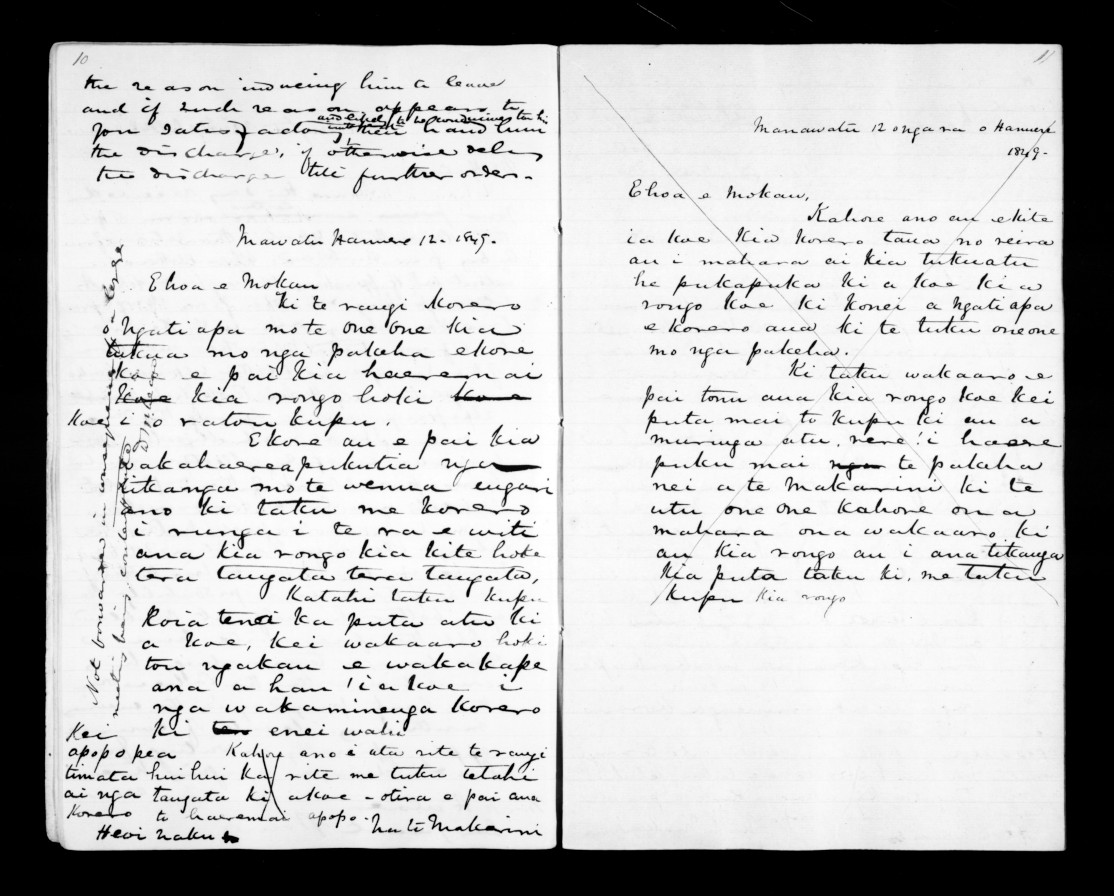 10
the reason inducing him to leave
and if such reason appears to
you satisfactory then hand him
the discharge, if otherwise delay
the discharge till further orders.
Mawatu Hanuere 12. 1849.
Ehoa e Mokau
Ki te rangi korero
o Ngatiapa mo te one one kia
tukua mo nga pakeha ekore
koe e pai kia haeremai
kia rongo hoki
koe i o ratou kupu.
Ekore au e pai kia
wakahaereapukutia nga
tikanga mo te wenua engari
ano ki taku me korero
i runga i te ra e witi
ana kia rongo kia kite hoki
tera tangata tera tangata.
Katahi taku kupu
Koia tenei ka puta atu ki
a koe, kei wakaaro hoki
tou ngakau e wakakape
ana ahau i a koe i
nga wakaminenga korero
ki enei wahi
Kei apopo pea
timata huihui
ai nga tangata ki
korero
Kahore ano i ata rite te rangi
Ka rite me tuku tetahi
akoe - otira e pai ana
te haeremai apopo.
Heoi naku
Na te Makarini
Not forwarded in consequence of
meeting being
11
Manawatu 12 onga ra o Hanuere
1849.
Ehoa e Mokau,
Kahore ano au ekite
ia koe kia korero taua no reira
au i mahara ai kia tukuatu
he pukapuka ki a koe kia
rongo koe ki konei a Ngatiapa
e korero ana ki te tuku oneone
mo nga pakeha.
Ki taku wakaaro e
pai tonu ana kia rongo koe kei
puta mai to kupu ki au a
muringa atu, rere! i haere
puku mai nga te pakeha
nei a te Makarini ki te
utu one one kahore ona
mahara ona wakaaro ki
au kia rongo au i ana tikanga
kia puta taku ki, me taku
kupu kia rongo